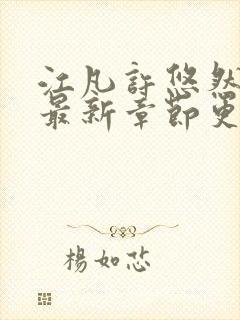 江凡許悠然
最新章節更
楊如芯